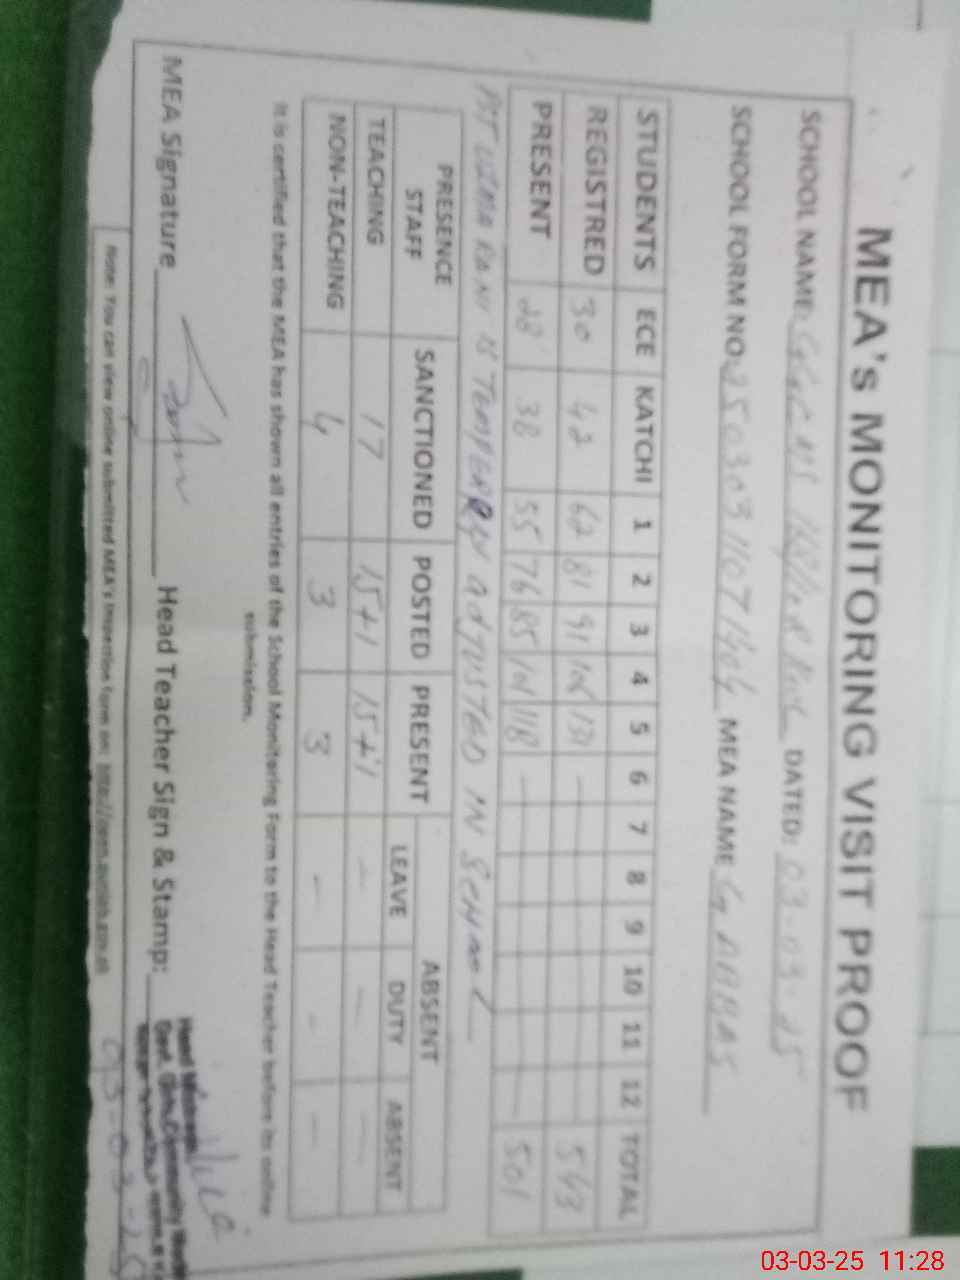 MEA's MONITORING VISIT PROOF
SCHOOL NAME: DATED: 03-03-25
SCHOOL FORM NO: MEA NAME G. ABBAS
STUDENTS ECE KATCHI 1 2 3 4 5 6 7 8 9 10 11 12 TOTAL
REGISTRED 30 42 62 81 91 106 131 — 543
PRESENT 28 38 55 76 85 101 118 — 501
PST UZMA RANI IS TEMPERORY ADJUSTED IN SCHOOL
PRESENCE STAFF SANCTIONED POSTED PRESENT ABSENT
LEAVE DUTY ABSENT
TEACHING 17 15+1 15+1 — — —
NON-TEACHING 4 3 3 — — —
It is certified that the MEA has shown all entries of the School Monitoring Form to the Head Teacher before its online
submission.
MEA Signature Head Teacher Sign & Stamp:
Head
Govt. Girls Community Model
03-03-25
Note: You can view online submitted MEA's inspection form on:
03-03-25 11:28